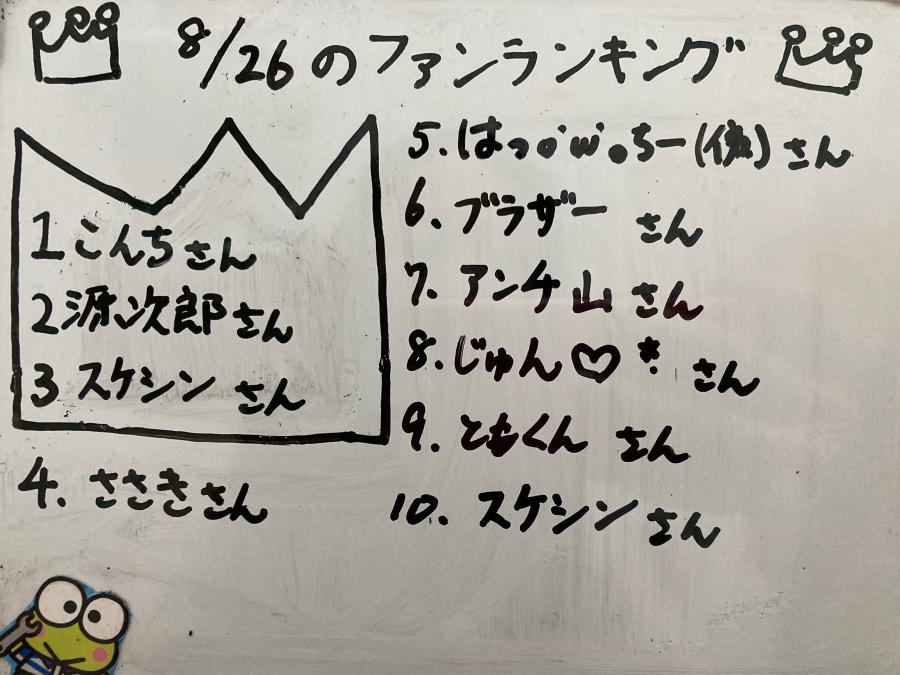 8/26のファンランキング
1 こんちさん
2 源次郎さん
3 スケシン さん
4. ささきさん
5. はっ•'ω'•ちー(仮) さん
6. ブラザー さん
7. アンチ山 さん
8. じゅん♡* さん
9. ともくん さん
10. スケシン さん